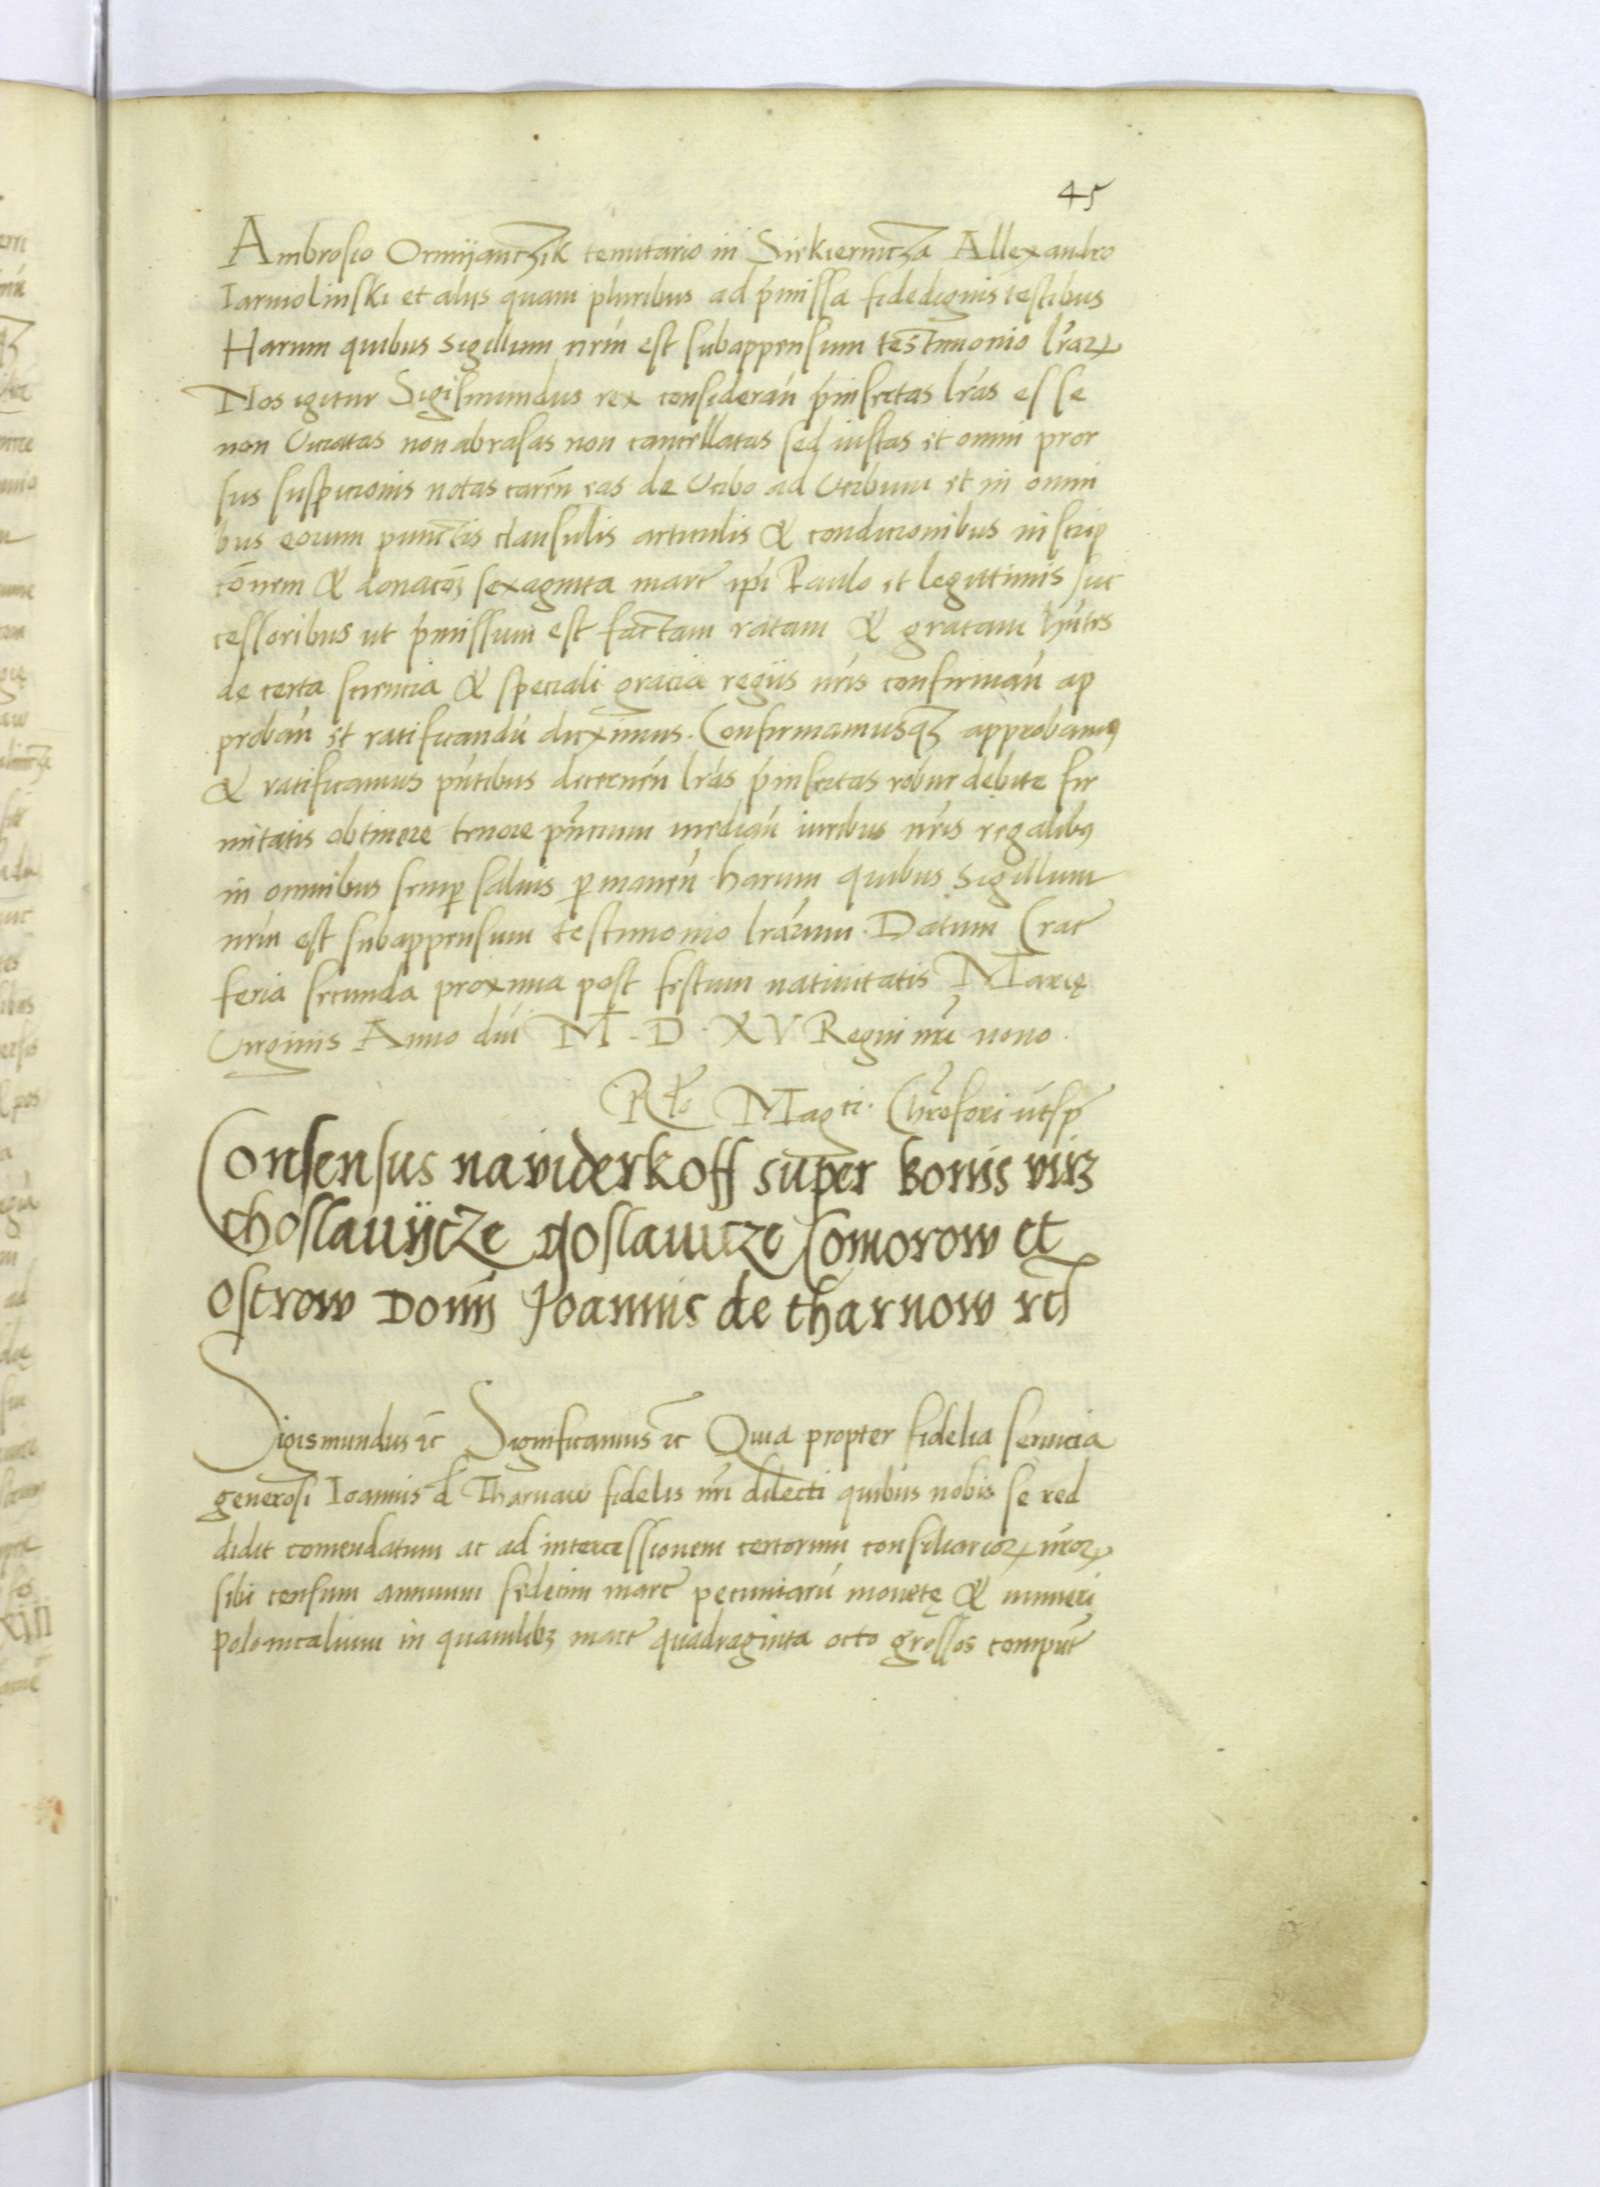 45
Ambrosio Ormijanczik tenutario in Siekierincza Allexandro
Iarmolinski et alijs quam pluribus ad p̃missa fidedignis testibus
Harum quibus sigillum nr̃m est subappensum testimonio lr̃arꝝ
Nos igitur Sigismundus rex considerañ p̃insertas lr̃as esse
non viciatas non abrasas non cancellatas sed iustas et omni pror
sus suspicionis notas careñ eas de verbo ad verbum et in omni
bus eorum punctis clausulis articulis & condicionibus inscrip
cõnem & donacõem sexaginta marc ip̃i Paulo et legittimis suc
cessoribus ut p̃missum est factam ratam & gratam hñtes
de certa sciencia & speciali gracia regiis nr̃is confirmañ ap
probañ et ratificandũ duximus. Confirmamusqꝫ approbamus
& ratificamus pñtibus decerneñ lr̃as p̃insertas robur debite fir
mitatis obtinere tenore pñcium mediañ iuribus nr̃is regalibus
in omnibus semp salvis pmaneñ harum quibus sigillum
nr̃m est subappensum testimonio lr̃arum. Datum Crac
feria secunda proxima post festum nativitatis Marię
virginis Anno dñi M. D. XV Regni nr̃i nono.
Rło Magci. Chr̃ofori ut sp̃
Consensus naviderkoff super bonis virz
choslavijcze goslavicze Comorow et
Ostrow Domĩ Joannis de tharnow rc̃
Sigismundus ꝛc̃ Significamus ꝛc Quia propter fidelia servicia
generosi Ioannis d Tharnaw fidelis nr̃i dilecti quibus nobis se red
didit comendatum ac ad intercessionem certorum consiliariorꝝ nr̃orꝝ
sibi censum annuum sedecim marc pecuniarũ monetę & numeri
polonicalium in quamlibꝫ marc quadraginta octo grossos comput̃